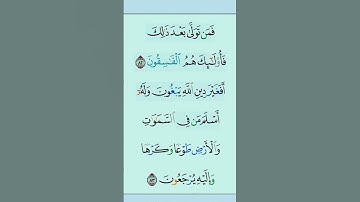 فَمَن تَوَلَّىٰ بَعْدَ ذَٰلِكَ
فَأُو۟لَـٰٓئِكَ هُمُ ٱلْفَـٰسِقُونَ ٨٢
أَفَغَيْرَ دِينِ ٱللَّهِ يَبْغُونَ وَلَهُۥٓ
أَسْلَمَ مَن فِى ٱلسَّمَـٰوَٰتِ
وَٱلْأَرْضِ طَوْعًا وَكَرْهًا
وَإِلَيْهِ يُرْجَعُونَ ٨٣